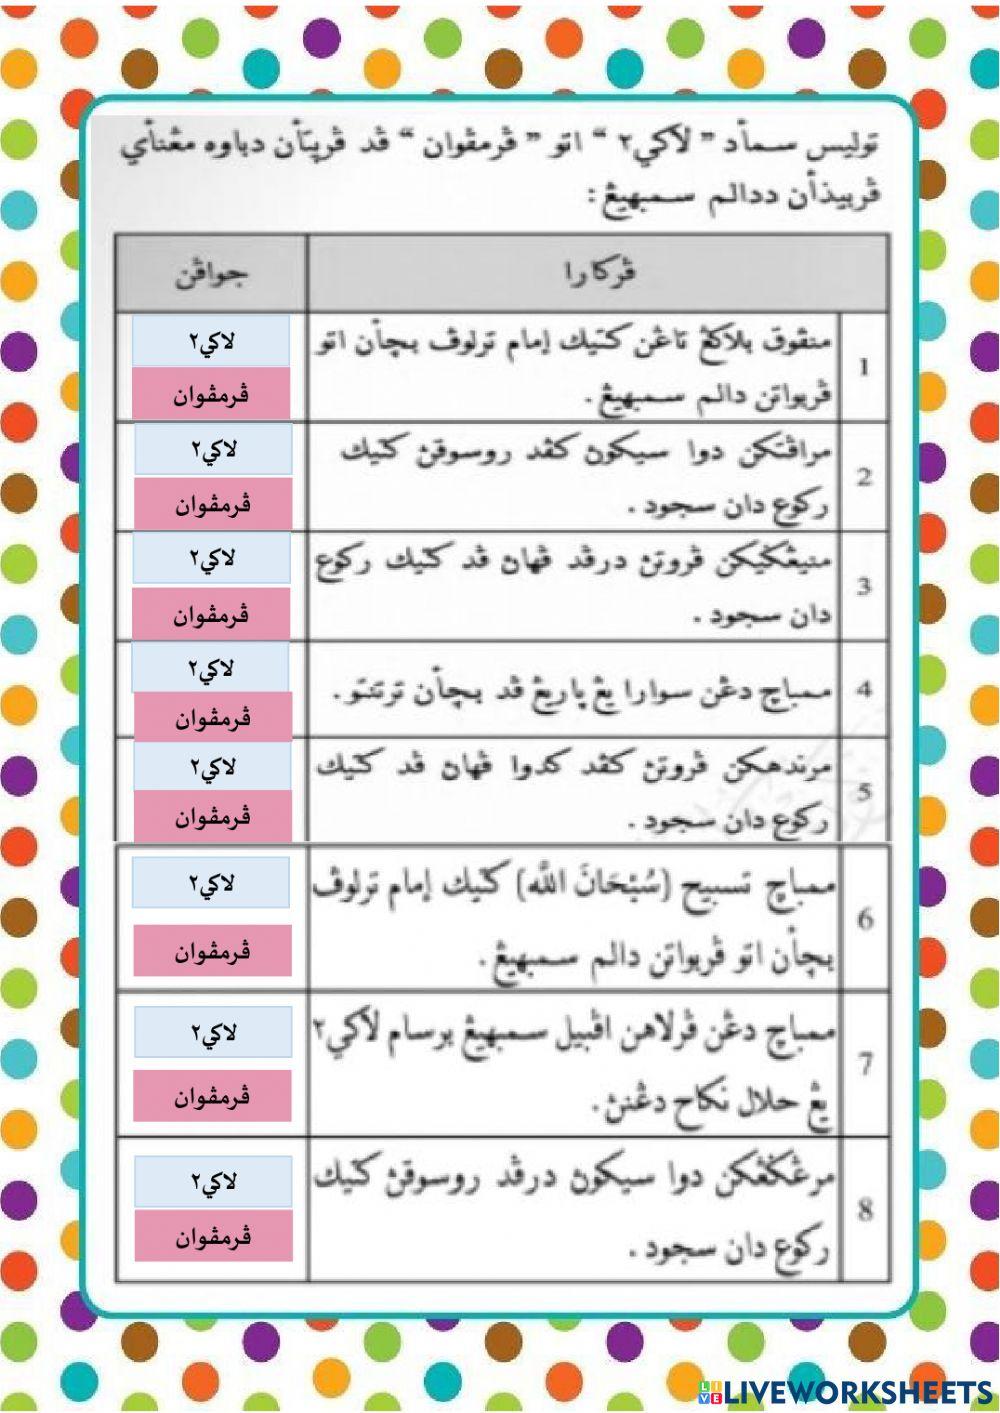 توليس سماءد " لاکي٢ " اتو " ڤرمڤوان " ڤد ڤرڽتاءن دباوه مڠناءي
ڤربيذاءن ددالم سمبهيڠ :
ڤرکارا
جواڤن
1
منڤوق بلاکڠ تاڠن کتيک إمام ترلوڤ بچاءن اتو
ڤربواتن دالم سمبهيڠ .
لاکي٢
ڤرمڤوان
2
مراڤتکن دوا سيکون کڤد روسوقڽ کتيک
رکوع دان سجود .
لاکي٢
ڤرمڤوان
3
منيڠݢيکن ڤروتڽ درڤد ڤهاڽ ڤد کتيک رکوع
دان سجود .
لاکي٢
ڤرمڤوان
4
ممباچ دڠن سوارا يڠ ڽاريڠ ڤد بچاءن ترتنتو .
لاکي٢
ڤرمڤوان
5
مرندهکن ڤروتڽ کڤد کدوا ڤهاڽ ڤد کتيک
رکوع دان سجود .
لاکي٢
ڤرمڤوان
6
ممباچ تسبيح (سُبْحَانَ اللّٰه) کتيک إمام ترلوڤ
بچاءن اتو ڤربواتن دالم سمبهيڠ .
لاکي٢
ڤرمڤوان
7
ممباچ دڠن ڤرلاهن اڤبيل سمبهيڠ برسام لاکي٢
يڠ حلال نکاح دڠنڽ .
لاکي٢
ڤرمڤوان
8
مرڠݢڠکن دوا سيکوڽ درڤد روسوقڽ کتيک
رکوع دان سجود .
لاکي٢
ڤرمڤوان
LIVEWORKSHEETS